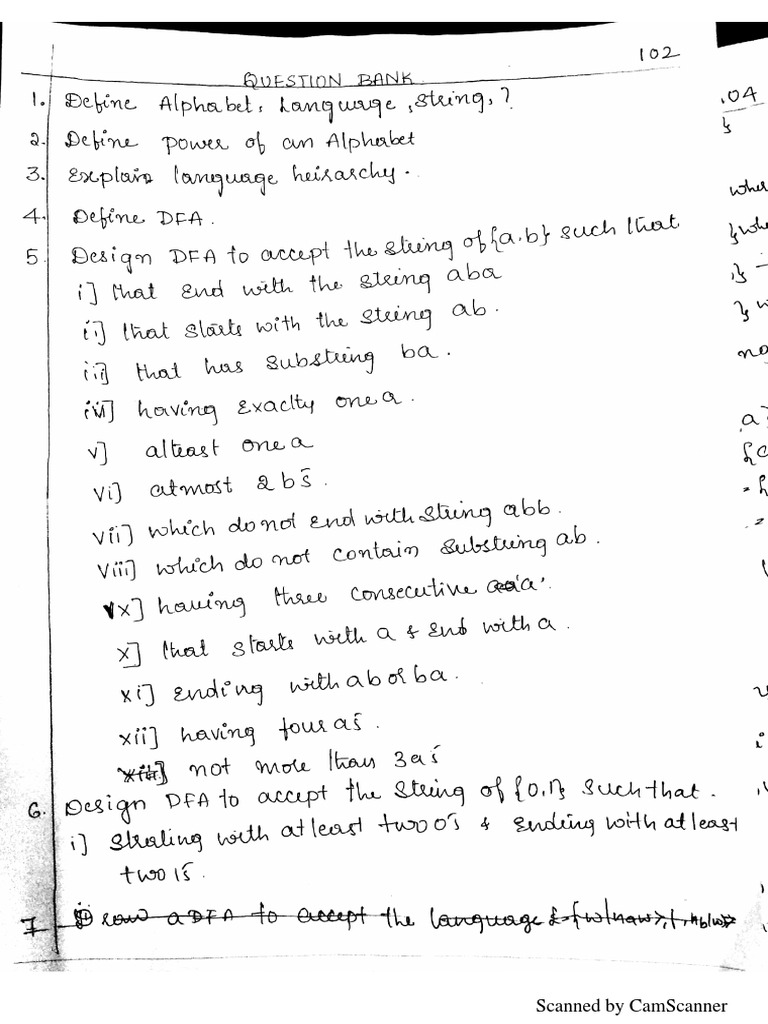 102
QUESTION BANK
1. Define Alphabet, Language, String, ?
2. Define power of an Alphabet
3. Explain language heirarchy.
4. Define DFA.
5. Design DFA to accept the string of {a,b} such that
i] that end with the string aba
ii] that starts with the string ab.
iii] that has substring ba.
iv] having exaclty one a.
v] alteast one a
vi] atmost 2 b's.
vii] which do not end with string abb.
viii] which do not contain substring ab.
ix] having three consecutive a'.
x] that starts with a & end with a.
xi] ending with ab or ba.
xii] having four a's.
xiii] not more than 3 a's
6. Design DFA to accept the string of {0,1} such that.
i] strating with atleast two 0's & ending with atleast
two 1's.
7. Draw a DFA to accept the language
.04
}
wher
}
no
a
Scanned by CamScanner